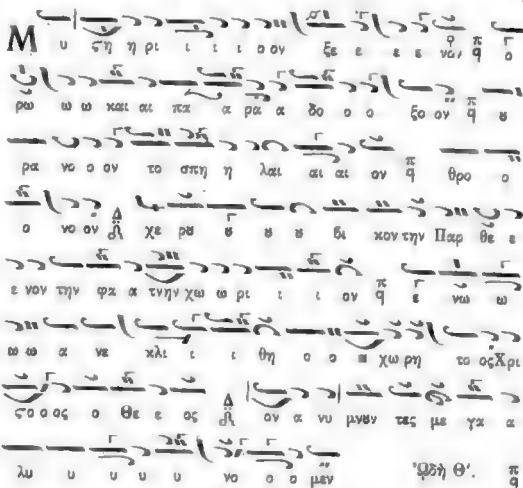 Μ υ ςη η ρι ι ι ι ο ον ξε ε ε ε νον π q ο
ρω ω ω και αι πα α ρα α δο ο ο ξο ον π q ȣ
ρα νο ο ον το σπη η λαι αι αι ον π q θρο ο
ο νο ον Δ χε ρȣ ȣ ȣ ȣ βι κον την Παρ θε ε
ε νον την φα α τνην χω ω ρι ι ι ον π q ε νω ω
ω ω α νε κλι ι ι θη ο ο ο χω ρη το ος Χρι
ςο ο ος ο Θε ε ος Δ ον α νυ μνȣν τες με γα α
λυ υ υ υ υ νο ο ο μεν ᾨδὴ Θ'. π q